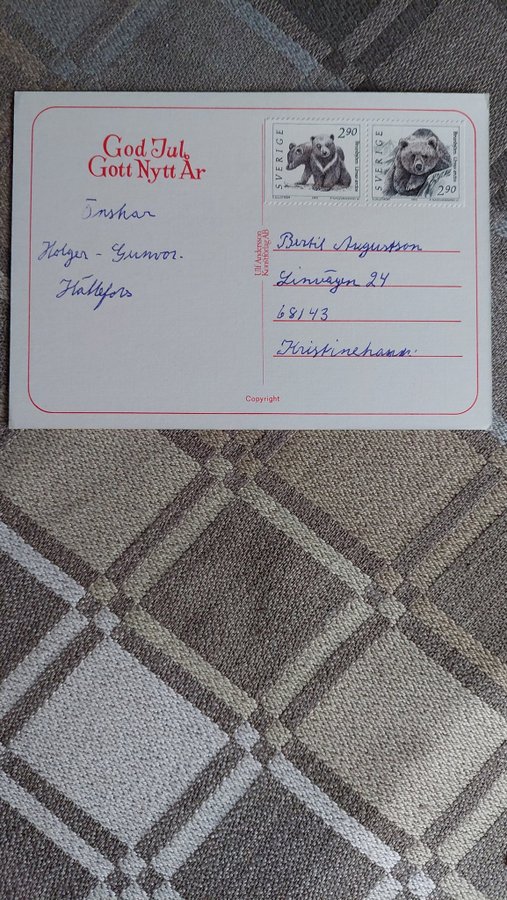 God Jul,
Gott Nytt År
Önskar
Holger - Gunvor.
Hällefors
SVERIGE
2.90
SVERIGE
2.90
Ulf Andersson
Konstförlag AB
Bertil Augustsson
Linvägen 24
68143
Kristinehamn.
Copyright